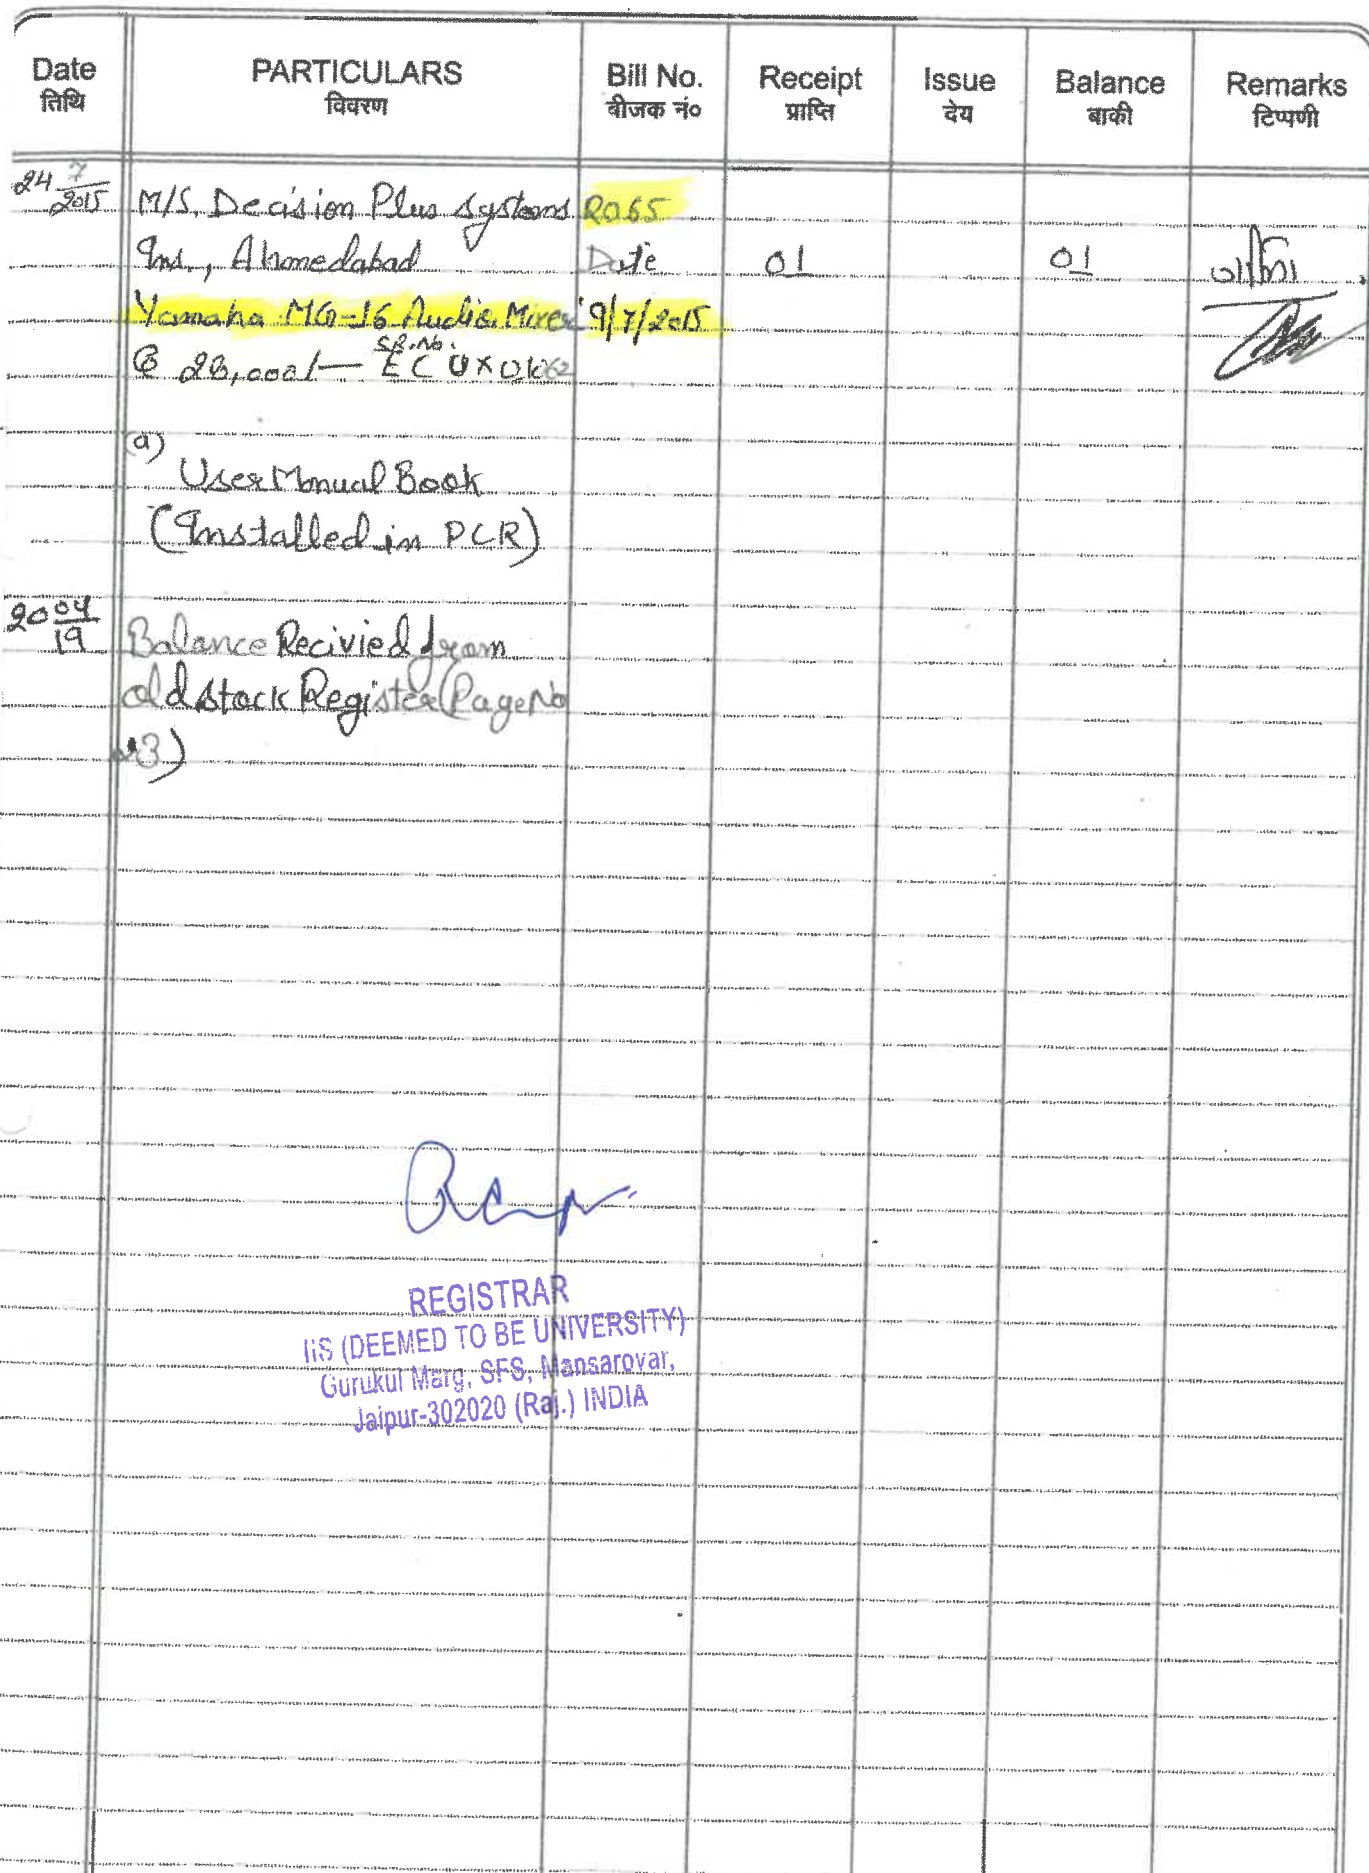 Date PARTICULARS Bill No. Receipt Issue Balance Remarks
तिथि विवरण बीजक नं० प्राप्ति देय बाकी टिप्पणी
24 7/2015 M/S, Decision Plus Systems 2065
Ind., Ahmedabad Date 01 01
Yamaha MG-16 Audio Mixer 9/7/2015
SR. No.
@ 28,000/—
(a)
User Manual Book
(Installed in PCR)
20 04/19 Balance Recivied from
old stock Register (Page No
23)
REGISTRAR
IIS (DEEMED TO BE UNIVERSITY)
Gurukul Marg, SFS, Mansarovar,
Jaipur-302020 (Raj.) INDIA